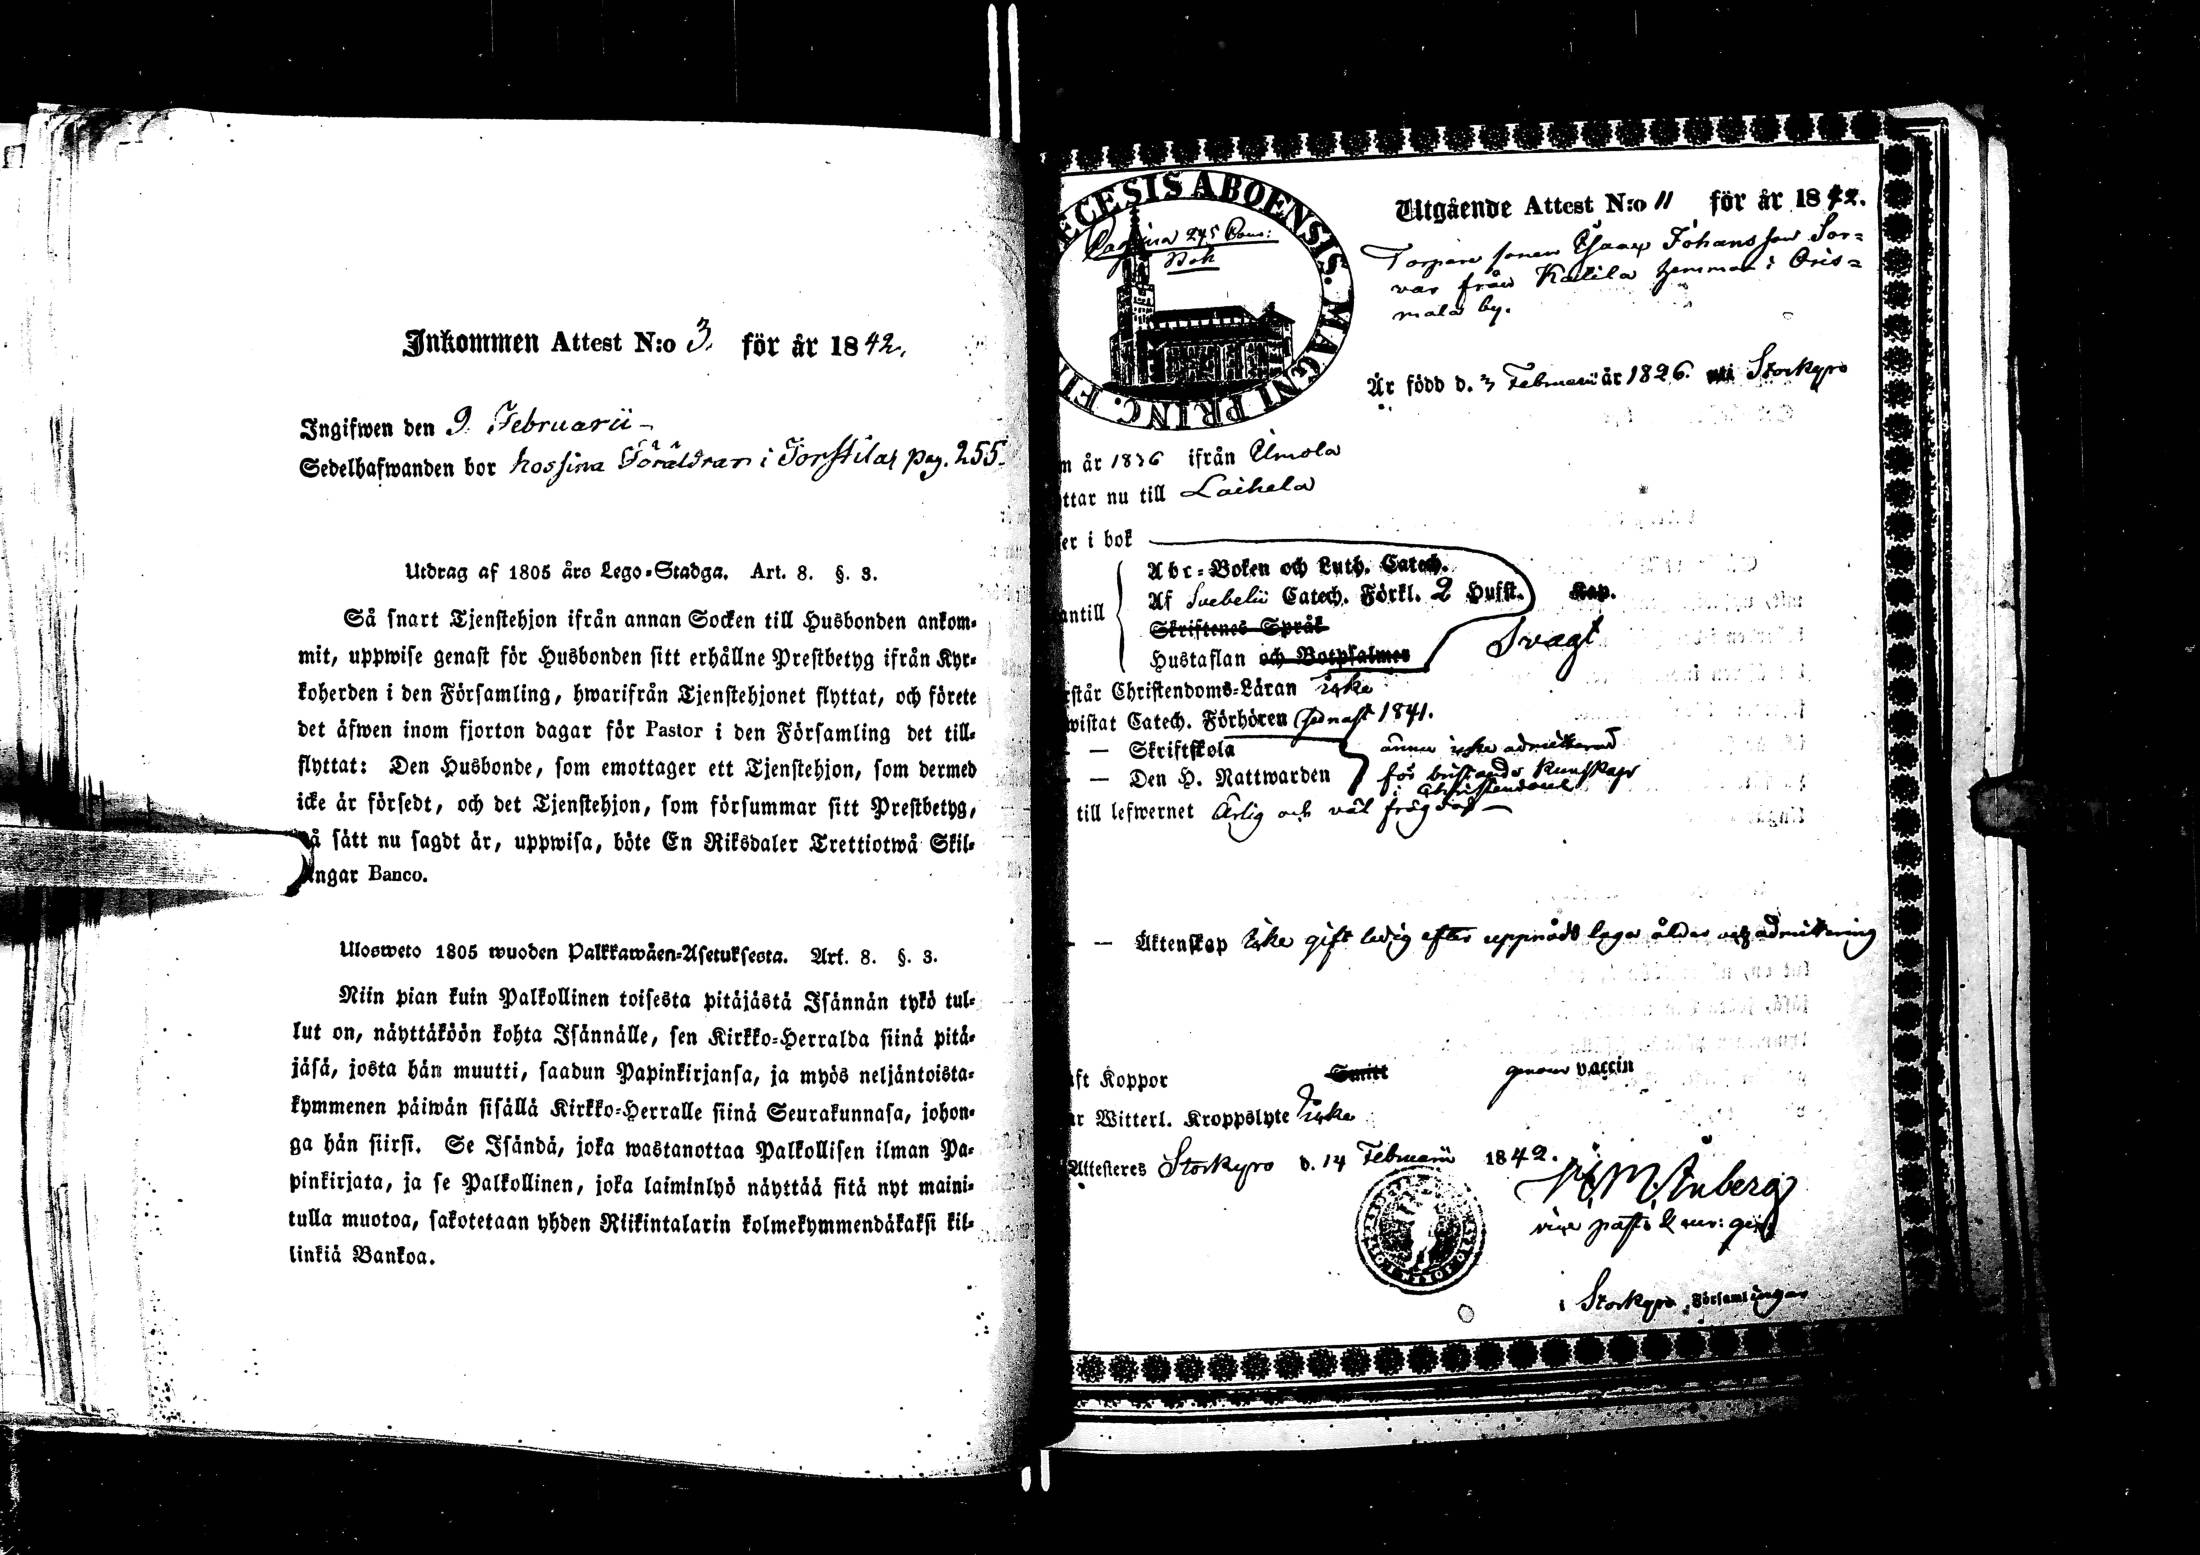 Inkommen Attest N:o 3. för år 1842.
Ingifwen den 9. Februarii -
Sedelhafwanden bor hos sina Föräldrar i Torstila pag. 255.
Utdrag af 1805 års Lego-Stadga. Art. 8. §. 3.
Så snart Tjenstehjon ifrån annan Socken till Husbonden ankom-
mit, uppwise genast för Husbonden sitt erhållne Prestbetyg ifrån Kyr-
koherden i den Församling, hwarifrån Tjenstehjonet flyttat, och förete
det äfwen inom fjorton dagar för Pastor i den Församling det till-
flyttat: Den Husbonde, som emottager ett Tjenstehjon, som dermed
icke är försedt, och det Tjenstehjon, som försummar sitt Prestbetyg,
å sätt nu sagdt är, uppwisa, böte En Riksdaler Trettiotwå Skil-
ngar Banco.
Ulosweto 1805 wuoden Palkkawäen-Asetuksesta. Art. 8. §. 3.
Niin pian kuin Palkollinen toisesta pitäjästä Isännän tykö tul-
lut on, näyttäköön kohta Isännälle, sen Kirkko-Herralda siinä pitä-
jäsä, josta hän muutti, saadun Papinkirjansa, ja myös neljäntoista-
kymmenen päiwän sisällä Kirkko-Herralle siinä Seurakunnasa, johon-
ga hän siirsi. Se Isändä, joka wastanottaa Palkollisen ilman Pa-
pinkirjata, ja se Palkollinen, joka laiminlyö näyttää sitä nyt maini-
tulla muotoa, sakotetaan yhden Riikintalarin kolmekymmendäkaksi kil-
linkiä Bankoa.
ECESIS ABOENSIS. MAGNI PRINC. FI
Pagina 245 Com:
Bok
Utgående Attest N:o 11 för år 1842.
Torpare sonen Isaac Johansson Tor-
var från Kalila hemman i Oris-
mala by.
Är född d. 3 Februarii år 1826. i Storkyro
m år 1836 ifrån Ilmola
ttar nu till Laihela
er i bok
Abc-Boken och Luth. Catech.
antill
Af Svebelii Catech. Förkl. 2 Hufst. Kap.
Skriftenes Språk
Hustaflan och Botpsalmer
Svagt
rstår Christendoms-Läran icke
wistat Catech. Förhören sednast 1841.
— Skriftskola
ännu icke admitterad
— Den H. Nattwarden
för bristande kunskaper
i Christendomen
till lefwernet Ärlig och väl frägdad —
— — Äktenskap icke gift ledig efter uppnådd laga ålder och admittering
ft Koppor Smitt genom vaccin
r Witterl. Kroppslyte Icke
Attesteres Storkyro d. 14 Februarii 1842.
vice pastor
i Storkyro Församlingar